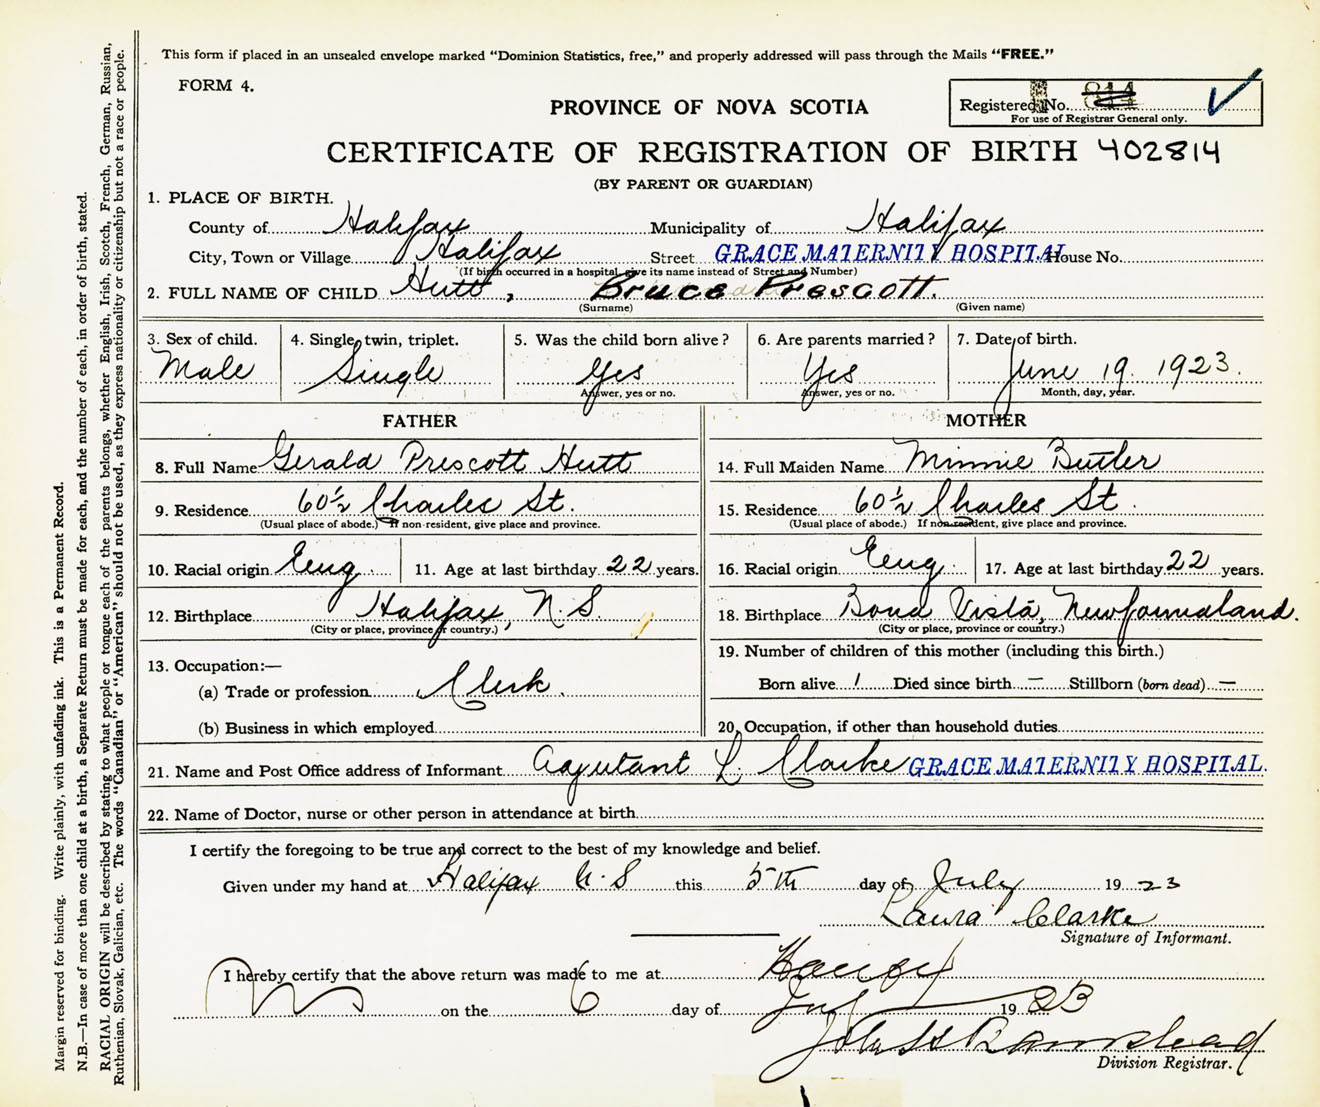 This form if placed in an unsealed envelope marked “Dominion Statistics, free,” and properly addressed will pass through the Mails “FREE.”
FORM 4.
PROVINCE OF NOVA SCOTIA
Registered No. 814
For use of Registrar General only.
CERTIFICATE OF REGISTRATION OF BIRTH 402814
(BY PARENT OR GUARDIAN)
1. PLACE OF BIRTH.
County of Halifax Municipality of Halifax
City, Town or Village Halifax Street GRACE MATERNITY HOSPITAL House No.
(If birth occurred in a hospital, give its name instead of Street and Number)
2. FULL NAME OF CHILD Hutt, Bruce Prescott.
(Surname) (Given name)
3. Sex of child. 4. Single, twin, triplet. 5. Was the child born alive? 6. Are parents married? 7. Date of birth.
Male Single Yes Yes June 19 1923.
Answer, yes or no. Answer, yes or no. Month, day, year.
FATHER MOTHER
8. Full Name Gerald Prescott Hutt 14. Full Maiden Name Minnie Butler
9. Residence 60½ Charles St. 15. Residence 60½ Charles St.
(Usual place of abode.) If non-resident, give place and province. (Usual place of abode.) If non-resident, give place and province.
10. Racial origin Eng. 11. Age at last birthday 22 years. 16. Racial origin Eng. 17. Age at last birthday 22 years.
12. Birthplace Halifax, N.S. 18. Birthplace Bona Vista, Newfoundland.
(City or place, province or country.) (City or place, province or country.)
13. Occupation:— 19. Number of children of this mother (including this birth.)
(a) Trade or profession Clerk. Born alive 1 Died since birth — Stillborn (born dead) —
(b) Business in which employed 20. Occupation, if other than household duties
21. Name and Post Office address of Informant Adjutant L. Clarke GRACE MATERNITY HOSPITAL.
22. Name of Doctor, nurse or other person in attendance at birth
I certify the foregoing to be true and correct to the best of my knowledge and belief.
Given under my hand at Halifax N.S this 5th day of July 1923
Laura Clarke
Signature of Informant.
I hereby certify that the above return was made to me at
on the 6 day of July 1923
Division Registrar.
Margin reserved for binding. Write plainly, with unfading ink. This is a Permanent Record.
N.B.—In case of more than one child at a birth, a Separate Return must be made for each, and the number of each, in order of birth, stated.
RACIAL ORIGIN will be described by stating to what people or tongue each of the parents belongs, whether English, Irish, Scotch, French, German, Russian,
Ruthenian, Slovak, Galician, etc. The words “Canadian” or “American” should not be used, as they express nationality or citizenship but not a race or people.